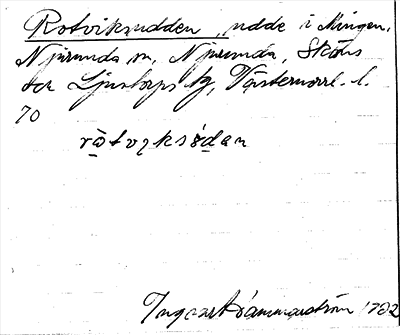 Rotviksudden, udde i Mingen,
Njurunda sn, Njurunda, Sköns
och Ljustorps tg, Västernorrl. l.
70
rò̱tvɩksö́dan
Ingvar Hammarström 1932